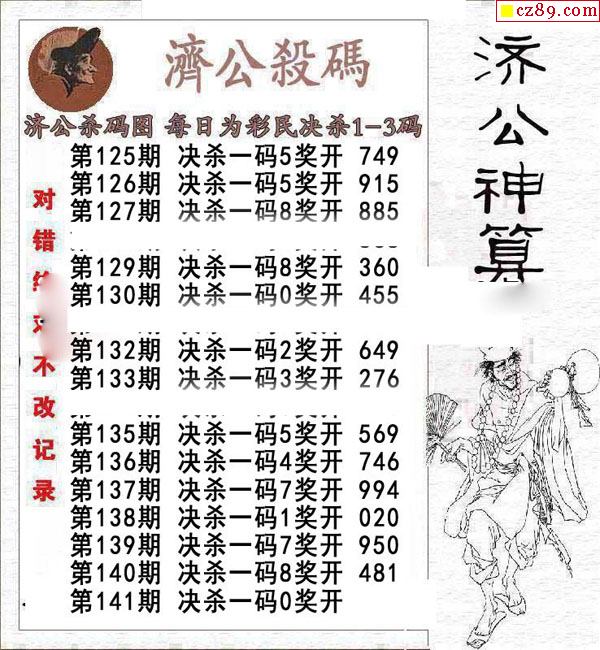 cz89.com
濟公殺碼
济公杀码图 每日为彩民决杀1-3码
第125期 决杀一码5奖开 749
第126期 决杀一码5奖开 915
第127期 决杀一码8奖开 885
第129期 决杀一码8奖开 360
第130期 决杀一码0奖开 455
第132期 决杀一码2奖开 649
第133期 决杀一码3奖开 276
第135期 决杀一码5奖开 569
第136期 决杀一码4奖开 746
第137期 决杀一码7奖开 994
第138期 决杀一码1奖开 020
第139期 决杀一码7奖开 950
第140期 决杀一码8奖开 481
第141期 决杀一码0奖开
对错 不改记录
济公神算